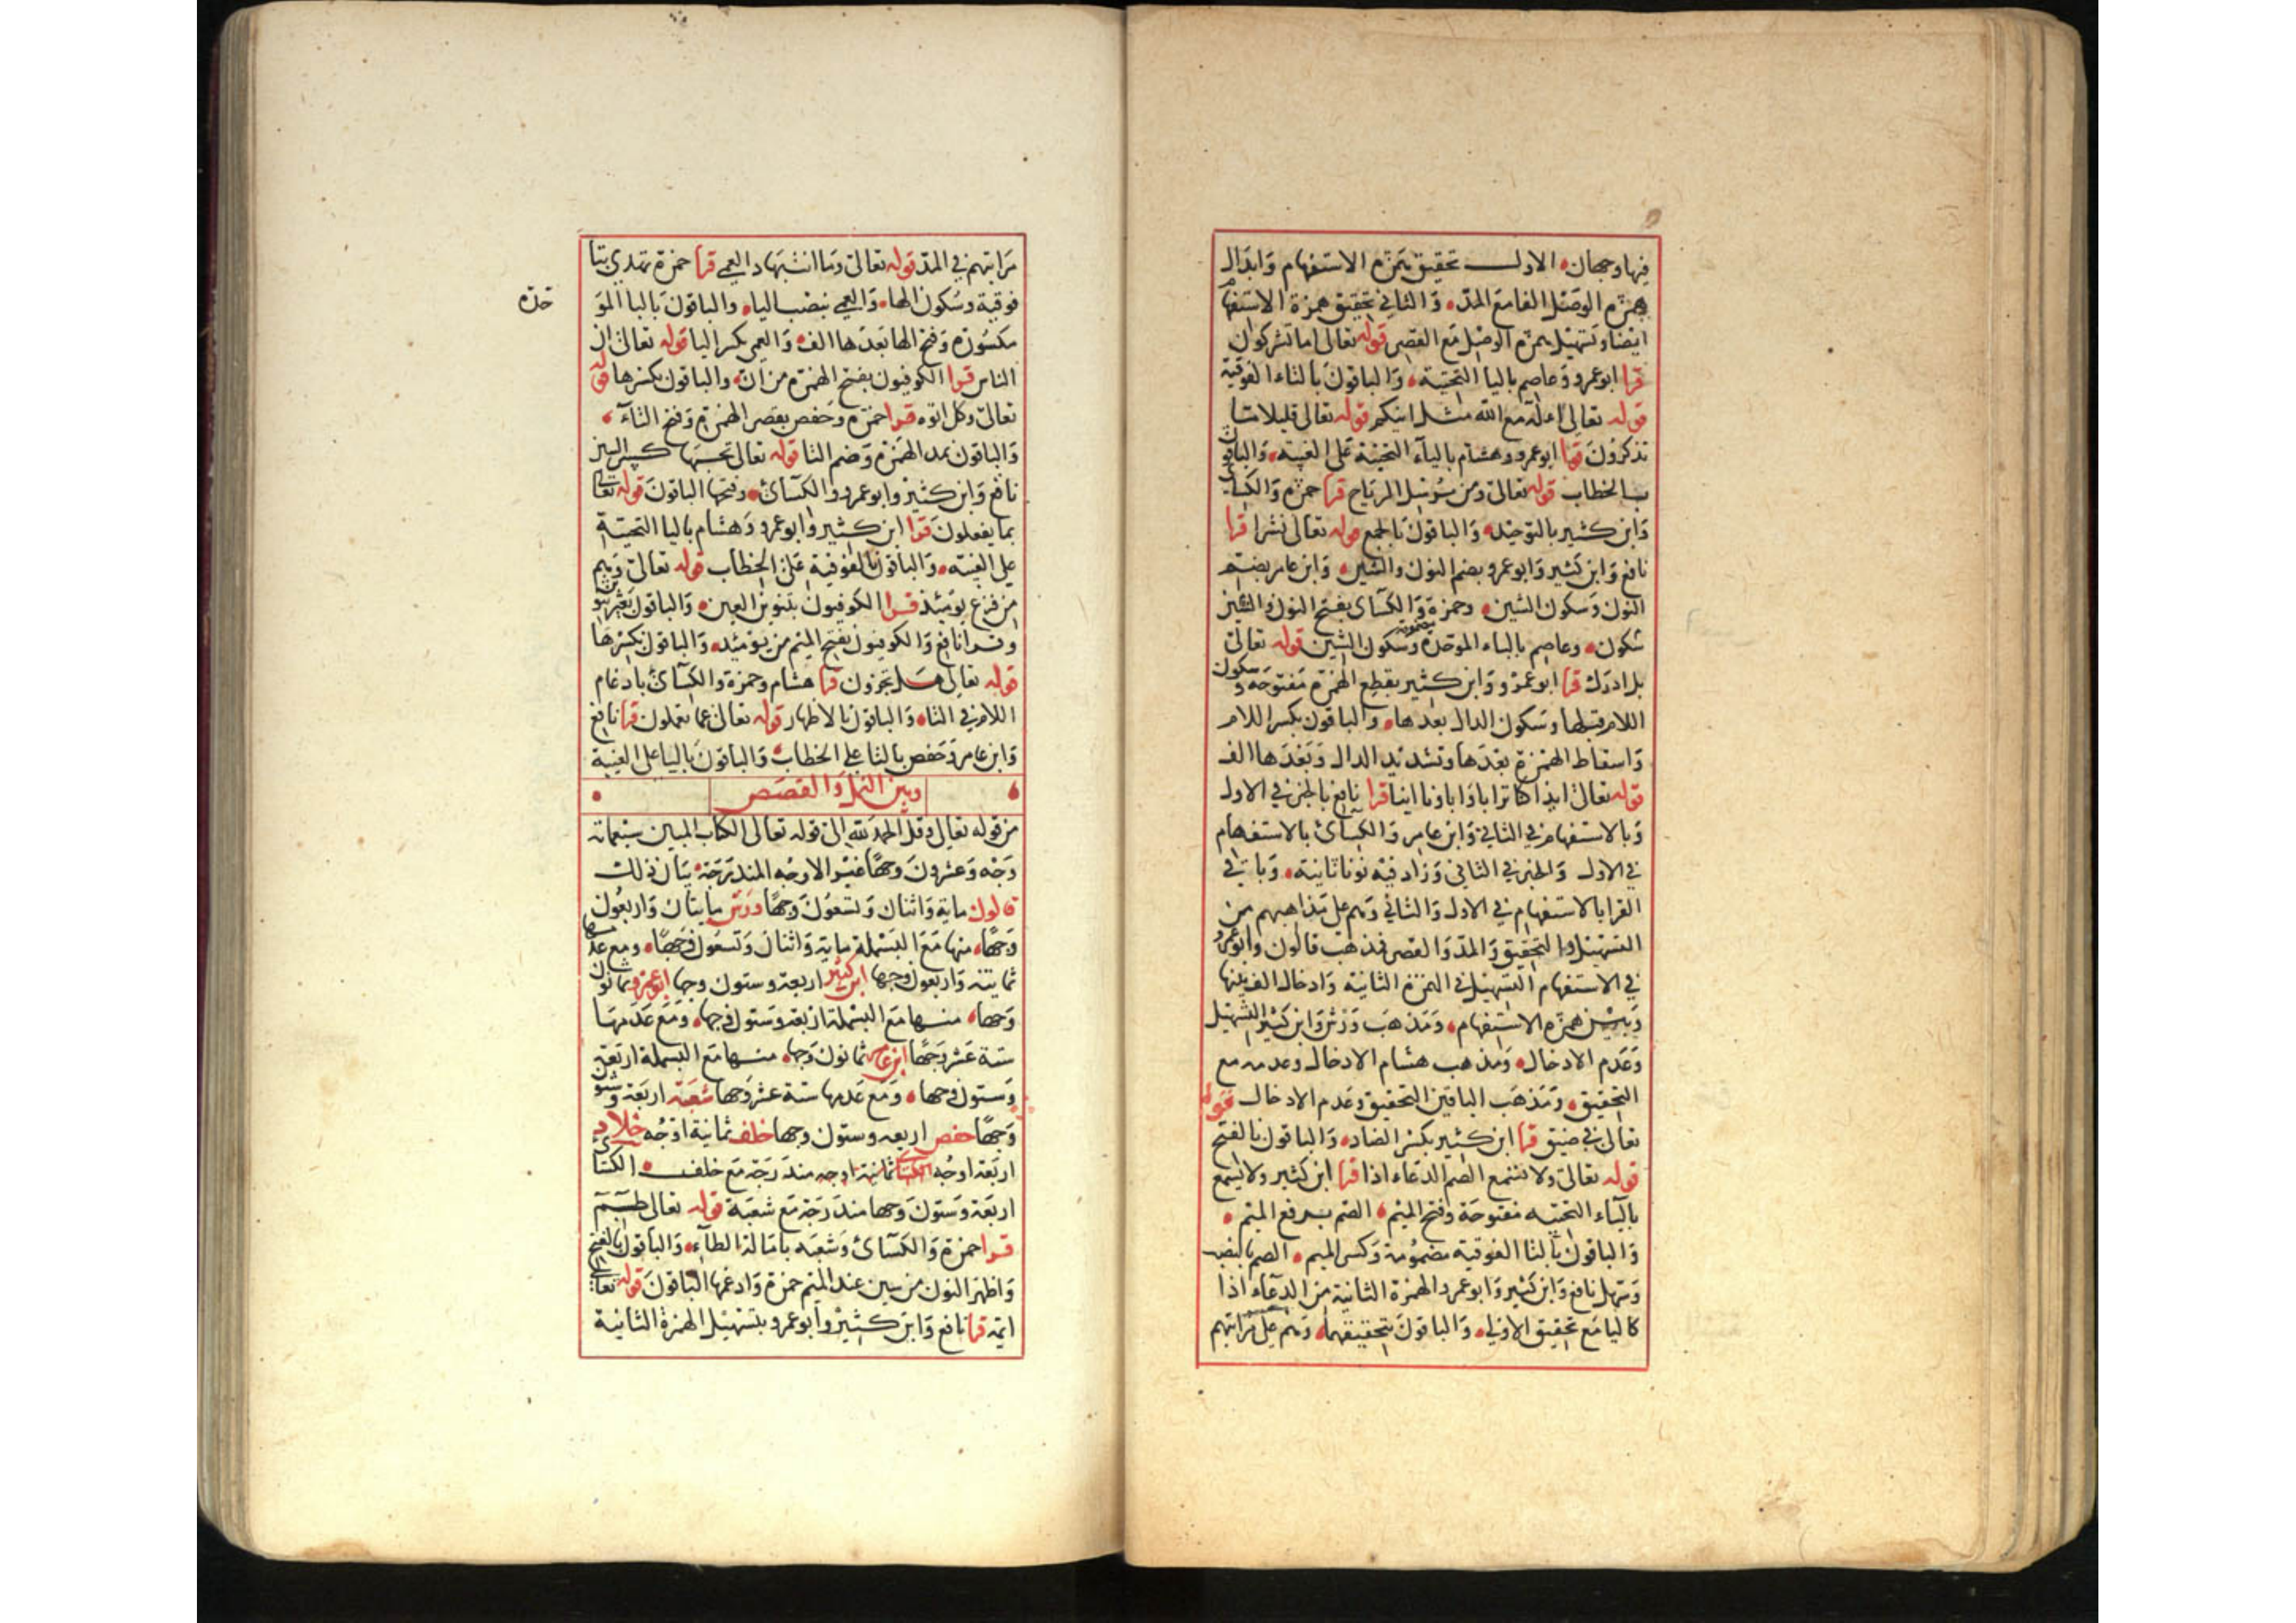 فيها وجهان الاول تحقيق همزة الاستفهام وابدال
همزة الوصل الفا مع المد والثاني تحقيق همزة الاستفهام
ايضا وتسهيل همزة الوصل مع القصر قوله تعالى اما تشركون
قرا ابو عمرو وعاصم باليا التحتية والباقون بالتاء الفوقية
قوله تعالى اءله مع الله مثل اينكم قوله تعالى قليلا ما
تذكرون قرا ابو عمرو وهشام بالياء التحتية على الغيبة والباقون
بالخطاب قوله تعالى ومن يرسل الرياح قرا حمزة والكسائي
وابن كثير بالتوحيد والباقون بالجمع قوله تعالى نشرا قرا
نافع وابن كثير وابو عمرو بضم النون والشين وابن عامر بضم
النون وسكون الشين وحمزة والكسائ بفتح النون والشين
سكون وعاصم بالباء الموحدة مضمومة وسكون الشين قوله تعالى
بل ادرك قرا ابو عمرو وابن كثير بقطع الهمزة مفتوحة وسكون
اللام قبلها وسكون الدال بعدها والباقون بكسر اللام
واسقاط الهمزة بعدها وتشديد الدال وبعدها الف
قوله تعالى ايذا كنا ترابا واباونا اينا قرا نافع بالخبر في الاول
وبالاستفهام في الثاني وابن عامر والكسائ بالاستفهام
في الاول والخبر في الثاني وزاد فيه نونا ثانية وباقي
القرا بالاستفهام في الاول والثاني وهم على مذاهبهم من
التسهيل والتحقيق والمد والقصر فمذهب قالون وابو عمرو
في الاستفهام التسهيل في الهمزة الثانية وادخال الف بينها
وبين همزة الاستفهام ومذهب ورش وابن كثير التسهيل
وعدم الادخال ومذهب هشام الادخال وعدمه مع
التحقيق ومذهب الباقين التحقيق وعدم الادخال قوله
تعالى في ضيق قرا ابن كثير بكسر الضاد والباقون بالفتح
قوله تعالى ولا تسمع الصم الدعاء اذا قرا ابن كثير ولا يسمع
بالياء التحتيه مفتوحة وفتح الميم الصم برفع الميم
والباقون بالتا الفوقية مضمومة وكسر الميم الصم بالنصب
وسهل نافع وابن كثير وابو عمرو الهمزة الثانية من الدعاء اذا
كاليا مع تحقيق الاولى والباقون بتحقيقهما وهم على مراتبهم
مراتبهم في المد قوله تعالى وما انت بهاد العمي قرا حمزة تهدي بتا
فوقية وسكون الها والعمي بنصب اليا والباقون بالبا المو
حدة
مكسورة وفتح الها بعدها الف والعمي بكسر اليا قوله تعالى ان
الناس قرا الكوفيون بفتح الهمزة من ان والباقون بكسرها قوله
تعالى وكل اتوه قرا حمزة وحفص بقصر الهمزة وفتح التآء
والباقون بمد الهمزة وضم التا قوله تعالى تحسبها كسر السين
نافع وابن كثير وابو عمرو والكسائ وفتحها الباقون قوله تعالى
بما يفعلون قرا ابن كثير وابو عمرو وهشام باليا التحتية
على الغيبة والباقون بالفوقية على الخطاب قوله تعالى وهم
من فزع يومئذ قرا الكوفيون بتنوين العين والباقون بغير تنوين
وقرا نافع والكوفيون بفتح الميم من يومئذ والباقون بكسرها
قوله تعالى هل تجزون قرا هشام وحمزة والكسائ بادغام
اللام في التاء والباقون بالاظهار قوله تعالى عما تعملون قرا نافع
وابن عامر وحفص بالتا على الخطاب والباقون باليا على الغيبة
وبين النمل والقصص
من قوله تعالى وقل الحمد لله الى قوله تعالى الكتاب المبين سبعماية
وجه وعشرون وجها غير الاوجه المندرجة بيان ذلك
قالون ماية واثنان وتسعون وجها ورش مايتان واربعون
وجها منها مع البسملة ماية واثنان وتسعون وجها ومع عدمها
ثمانية واربعون وجها ابن كثير اربعة وستون وجها ابو عمرو ثمانون
وجها منها مع البسملة اربعة وستون وجها ومع عدمها
ستة عشر وجها ابن عامر ثمانون وجها منها مع البسملة اربعة
وستون وجها ومع عدمها ستة عشر وجها شعبة اربعة وستون
وجها حفص اربعه وستون وجها خلف ثمانية اوجه خلاد
اربعة اوجه الكسائ ثمانية اوجه مندرجة مع خلف الكسائي
اربعة وستون وجها مندرجة مع شعبة قوله تعالى طسم
قرا حمزة والكسائ وشعبه بامالة الطآء والباقون بالفتح
واظهر النون من سين عند الميم حمزة وادغمها الباقون قوله تعالى
ايمة قرا نافع وابن كثير وابو عمرو بتسهيل الهمزة الثانية